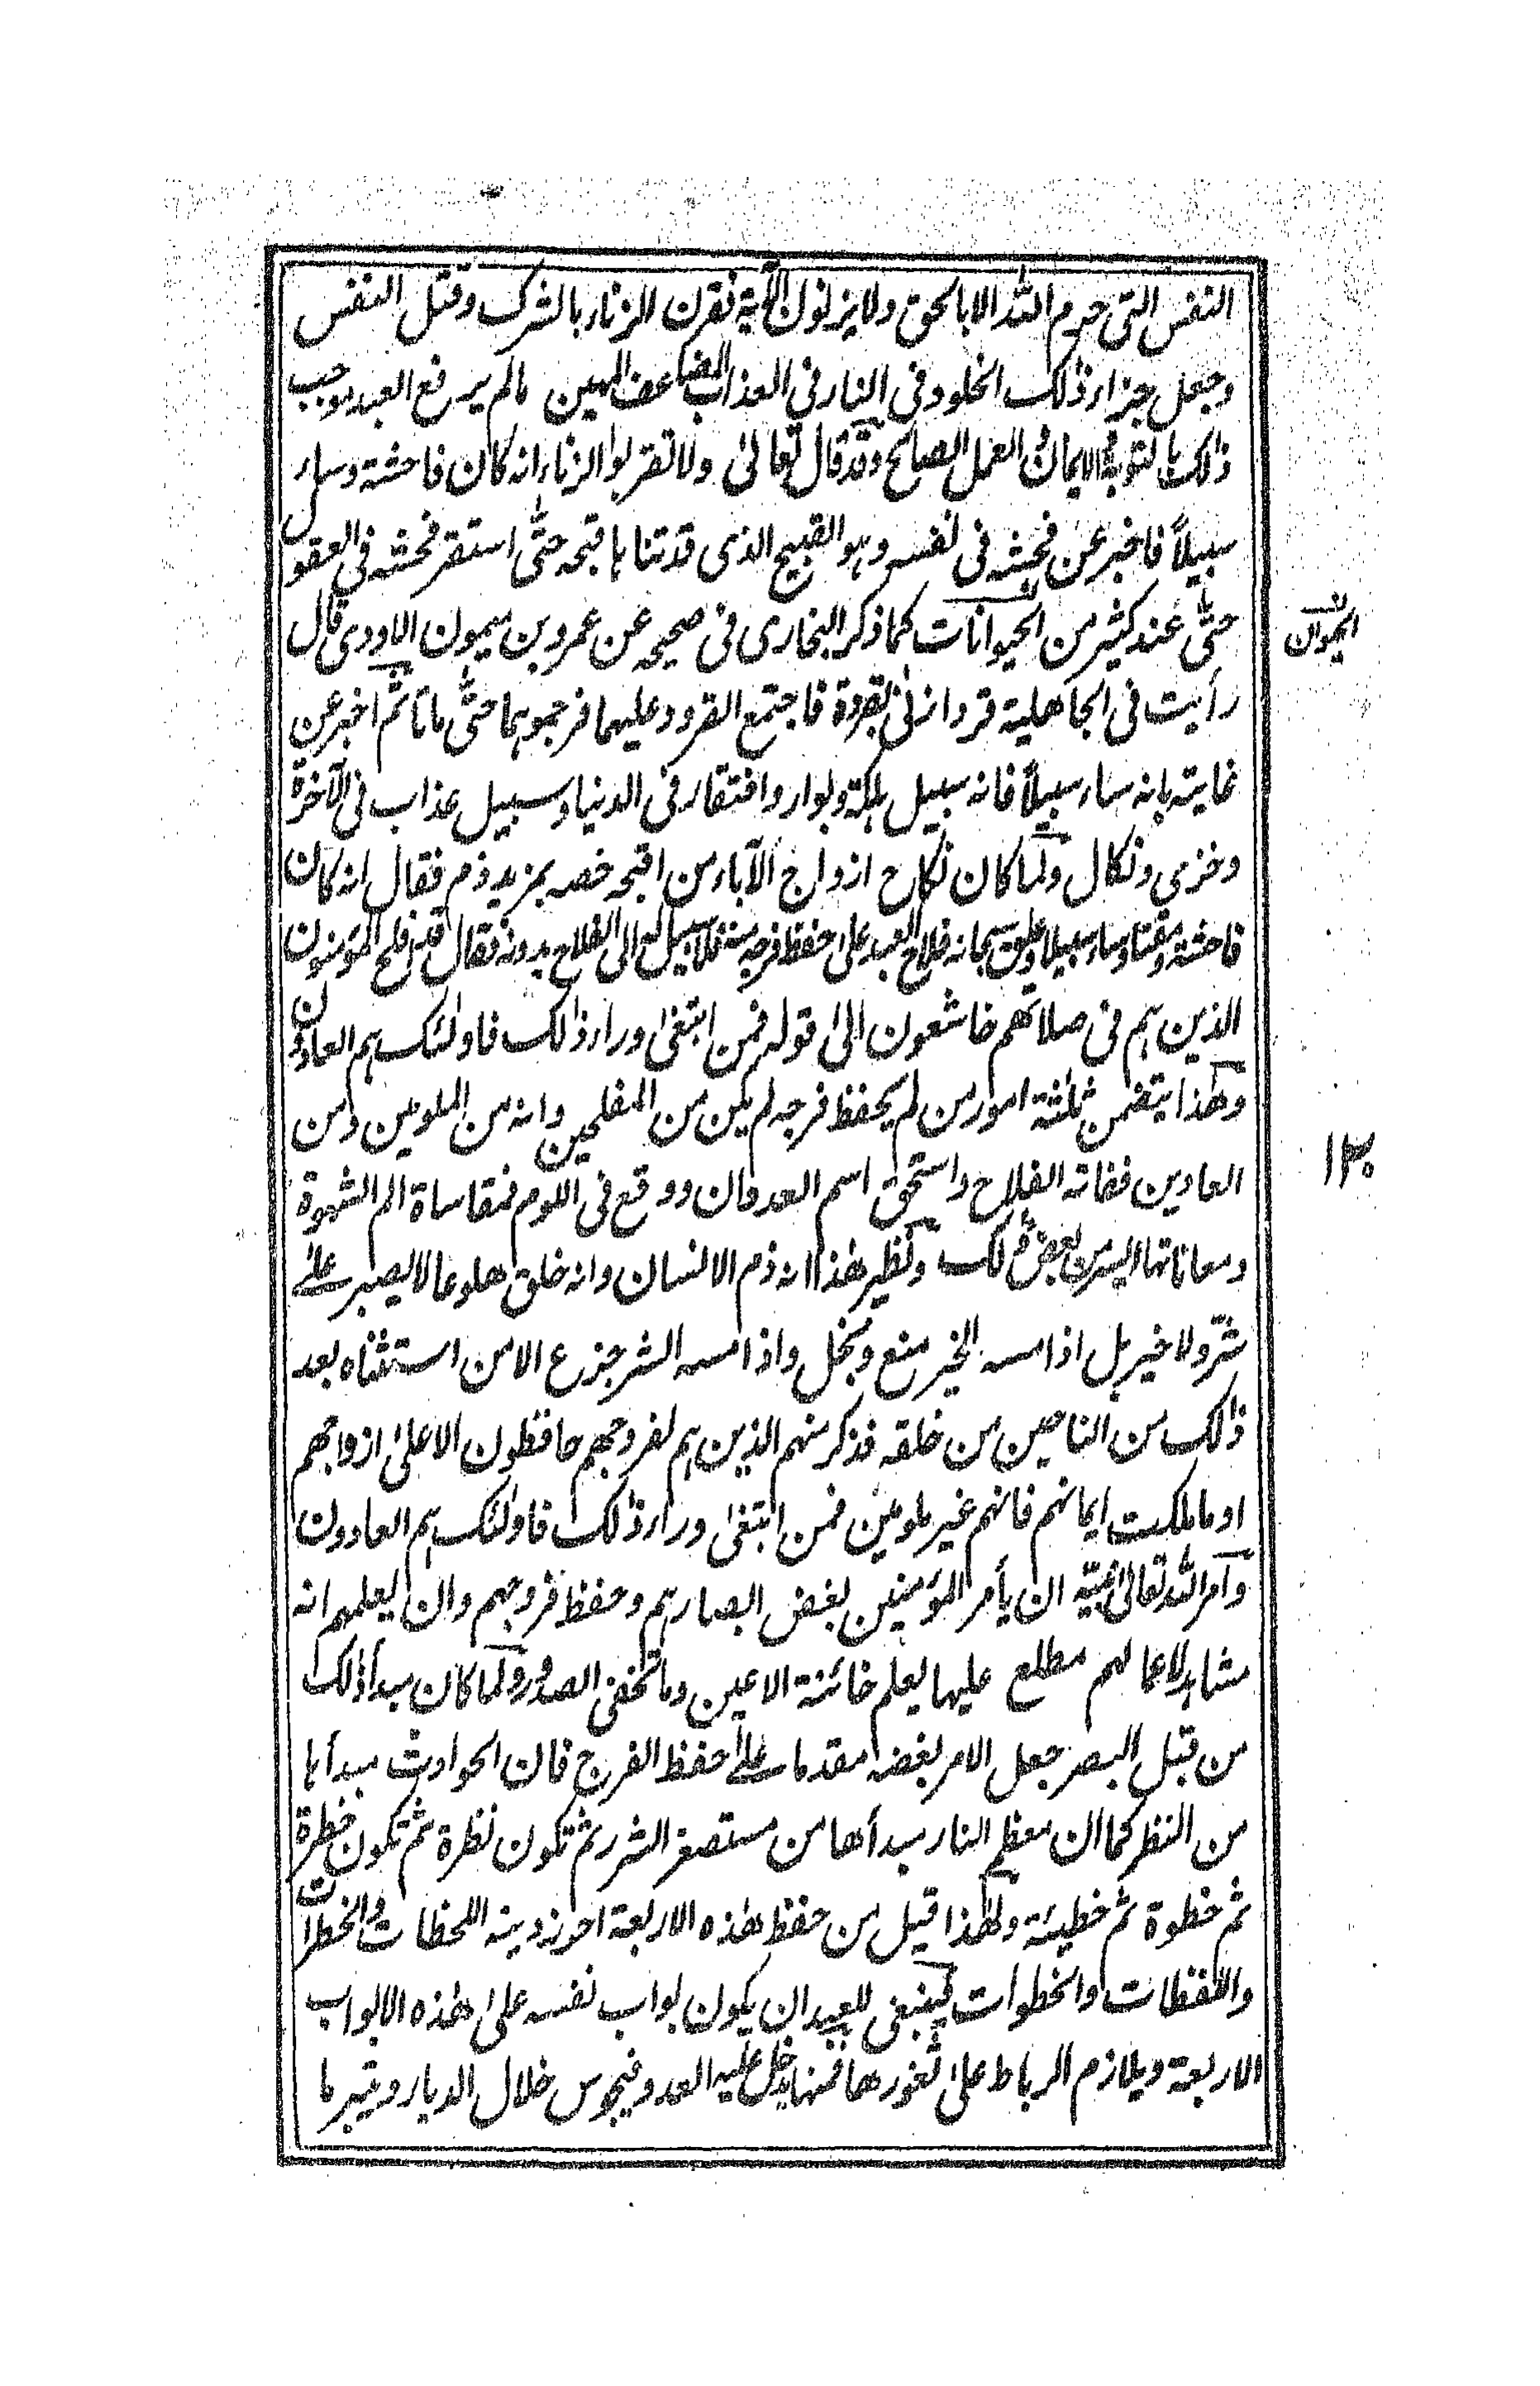 النفس التى حرم الله الا بالحق ولا يزنون الآية فقرن الزناء بالشرك وقتل النفس
وجعل جزاء ذلك الخلود فى النار فى العذاب المضاعف المهين مالم يرفع العبد موجب
ذلك بالتوبة والايمان والعمل الصالح وقد قال تعالىٰ ولا تقربوا الزناء انه كان فاحشة وساء
سبيلاً فاخبر عن فحشه فى نفسه وهو القبيح الذى قد تناها قبحه حتّٰى استقر فحشه فى العقول
حتّٰى عند كثير من الحيوانات كما ذكر البخارى فى صحيحه عن عمرو بن ميمون الاودى قال
رأيت فى الجاهلية قردا زنىٰ بقردة فاجتمع القرود عليهما فرجموهما حتّٰى ماتا ثم اخبر عن
غايته بانه ساء سبيلاً فانه سبيل هلكة وبوار وافتقار فى الدنيا وسبيل عذاب فى الآخرة
وخزى ونكال ولما كان نكاح ازواج الآباء من اقبحه خصه بمزيد ذم فقال انه كان
فاحشة ومقتا وساء سبيلا وعلق سبحانه فلاح العبد علىٰ حفظ فرجه منه فلا سبيل له الى الفلاح بدونه فقال قد افلح المؤمنون
الذين هم فى صلاتهم خاشعون الىٰ قوله فمن ابتغىٰ وراء ذلك فاولٰئك هم العادون
وهٰذا يتضمن ثلٰثة امور من لم يحفظ فرجه لم يكن من المفلحين وانه من الملومين ومن
العادين ففاته الفلاح واستحق اسم العدوان ووقع فى اللوم فمقاساة الم الشهوة
ومعاناتها ايسر من بعض ذلك ونظير هٰذا انه ذم الانسان وانه خلق هلوعا لا يصبر علىٰ
شرّ ولا خير بل اذا مسه الخير منع وبخل واذا مسه الشر جزع الا من استثناه بعد
ذٰلك من الناجين من خلقه فذكر منهم الذين هم لفروجهم حافظون الا علىٰ ازواجهم
او ما ملكت ايمانهم فانهم غير ملومين فمن ابتغىٰ وراء ذٰلك فاولٰئك هم العادون
وامر الله تعالىٰ نبيّه ان يأمر المؤمنين بغض ابصارهم وحفظ فروجهم وان يعلمهم انه
مشاهد لاعمالهم مطلع عليها يعلم خائنة الاعين وما تخفى الصدور ولما كان مبدأ ذلك
من قبل البصر جعل الامر بغضه مقدما علىٰ حفظ الفرج فان الحوادث مبدأها
من النظر كما ان معظم النار مبدأها من مستصغر الشرر ثم تكون نظرة ثم تكون خطرة
ثم خطوة ثم خطيئة ولهٰذا قيل من حفظ هٰذه الاربعة احرز دينه اللحظات والخطرات
واللفظات والخطوات فينبغى للعبد ان يكون بواب نفسه علىٰ هٰذه الابواب
الاربعة ويلازم الرباط علىٰ ثغورها فمنها يدخل عليه العدو فيجوس خلال الديار ويتبر ما
الحيوان
١٣٠